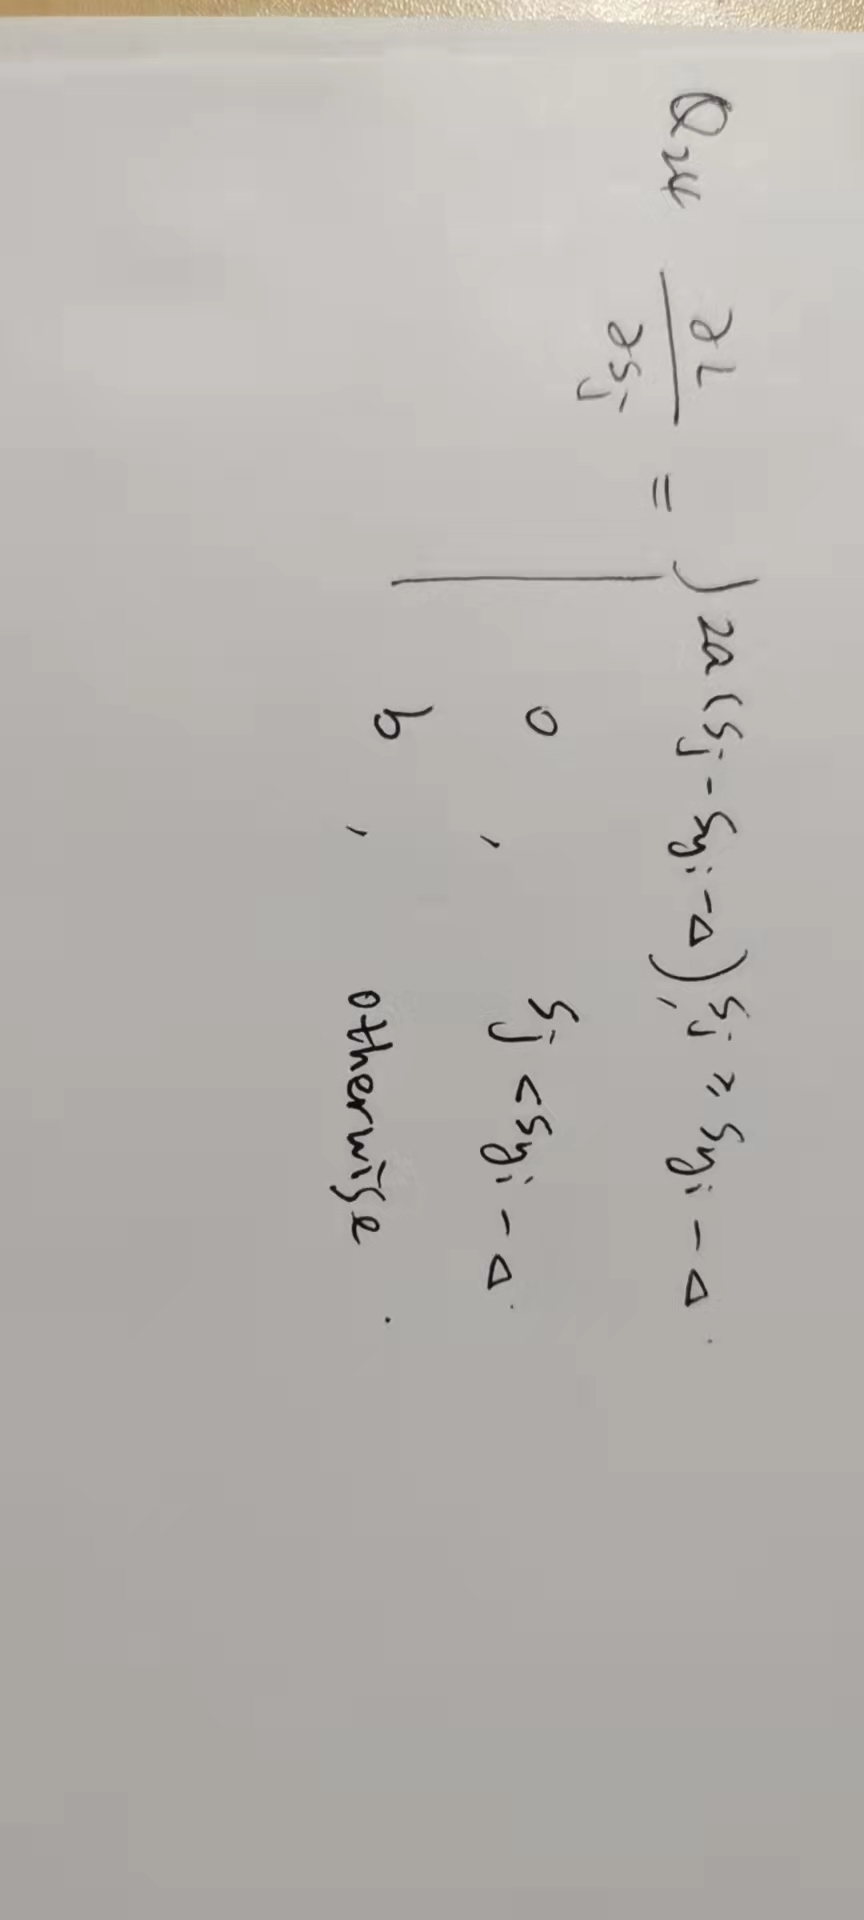 Q24 ∂L/∂Sj = { 2a(Sj - Syi - Δ), Sj ≥ Syi - Δ.
0 , Sj < Syi - Δ.
b , otherwise.